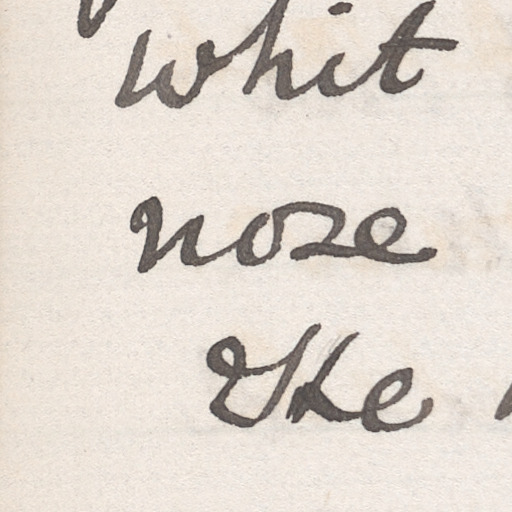 whit
nose
The